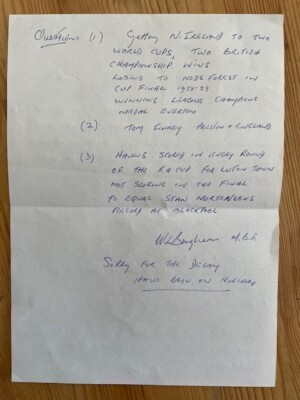 Questions (1) Getting N. IRELAND TO TWO
WORLD CUPS, TWO BRITISH
CHAMPIONSHIP WINS
LOSING TO NOTS FOREST IN
CUP FINAL 1958-59
WINNING LEAGUE CHAMPIONS
MEDAL EVERTON
(2) TOM FINNEY PRESTON + ENGLAND
(3) HAVING SCORED IN EVERY ROUND
OF THE F.A CUP FOR LUTON TOWN
NOT SCORING IN THE FINAL
TO EQUAL STAN MORTENSENS
RECORD AT BLACKPOOL
WL Bingham M.B.E.
SORRY FOR THE DELAY
HAVE BEEN ON HOLIDAY